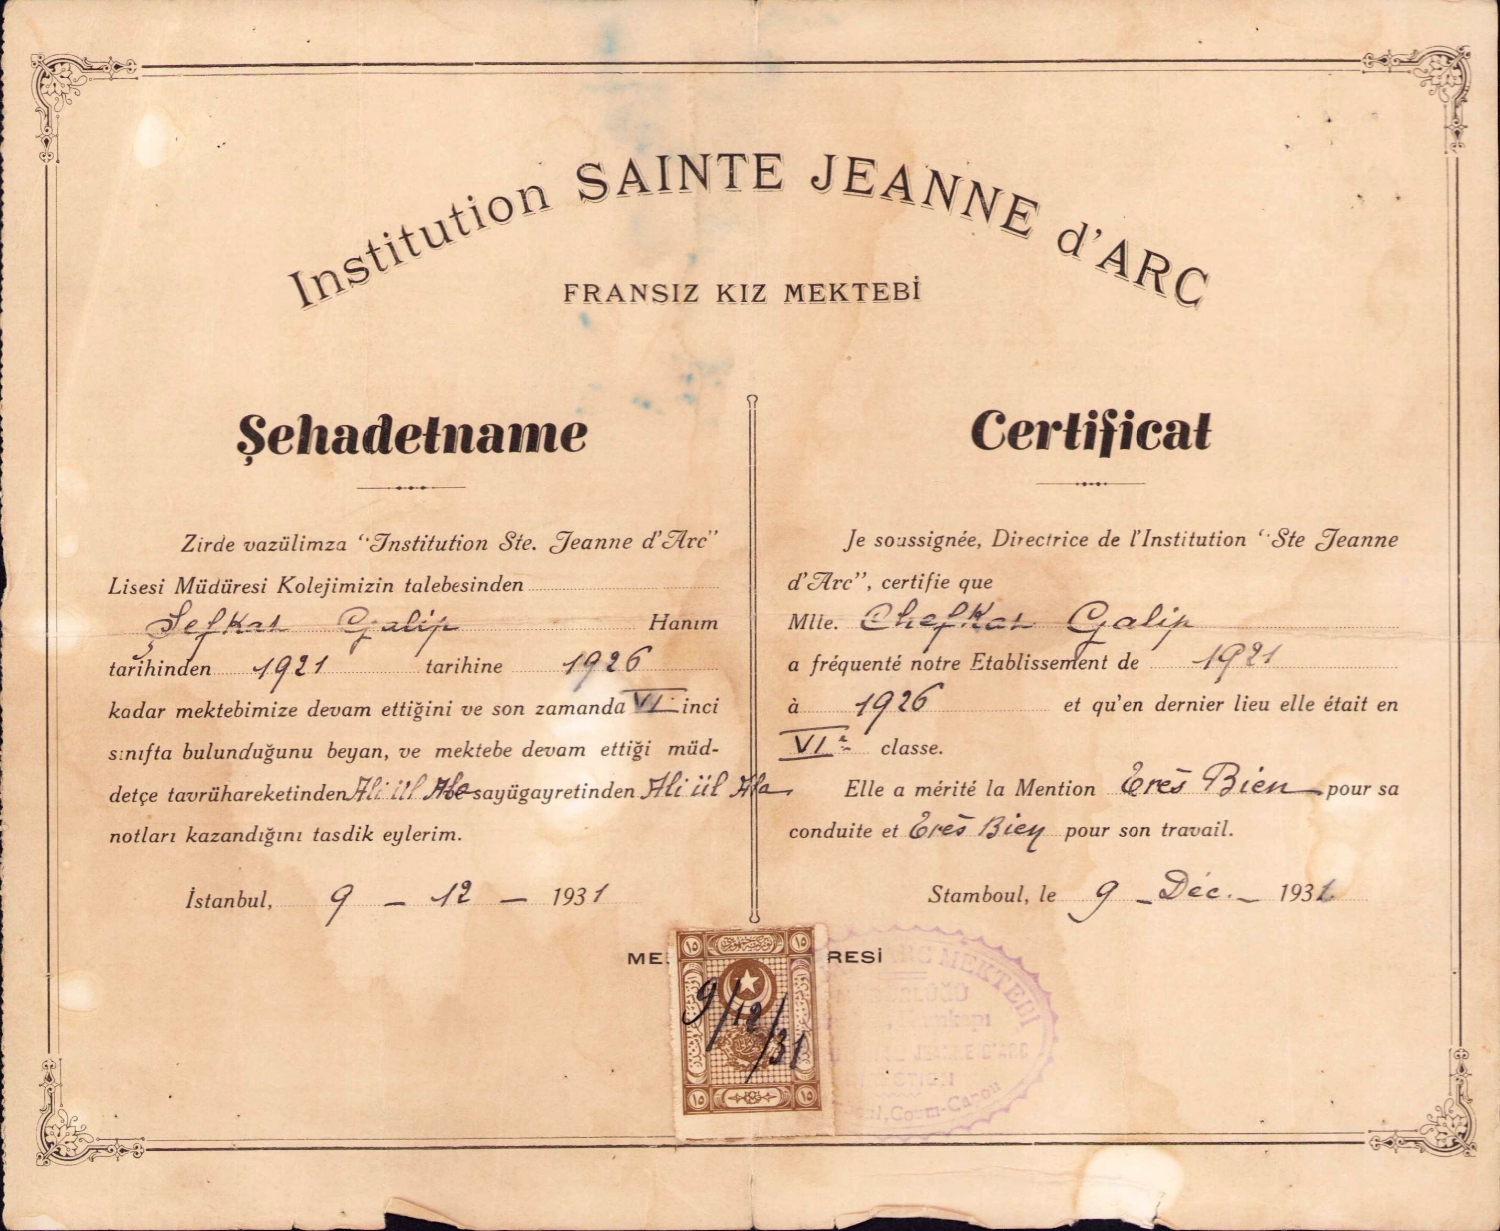 Institution SAINTE JEANNE d'ARC
FRANSIZ KIZ MEKTEBİ
Şehadetname
Zirde vazülimza "Institution Ste. Jeanne d'Arc"
Lisesi Müdüresi Kolejimizin talebesinden
Şefkat Galip Hanım
tarihinden 1921 tarihine 1926
kadar mektebimize devam ettiğini ve son zamanda VI inci
sınıfta bulunduğunu beyan, ve mektebe devam ettiği müd-
detçe tavrühareketinden Ali ül Ala sayügayretinden Ali ül Ala
notları kazandığını tasdik eylerim.
İstanbul, 9 - 12 - 1931
Certificat
Je soussignée, Directrice de l'Institution "Ste Jeanne
d'Arc", certifie que
Mlle. Chefkat Galip
a fréquenté notre Etablissement de 1921
à 1926 et qu'en dernier lieu elle était en
VIe classe.
Elle a mérité la Mention Très Bien pour sa
conduite et Très Bien pour son travail.
Stamboul, le 9 - Déc. - 1931
ME RESİ
١٥ ١٥
9/12/31
١٥ ١٥
ARC MEKTEBİ
JEANNE D'ARC
Coum-Capou